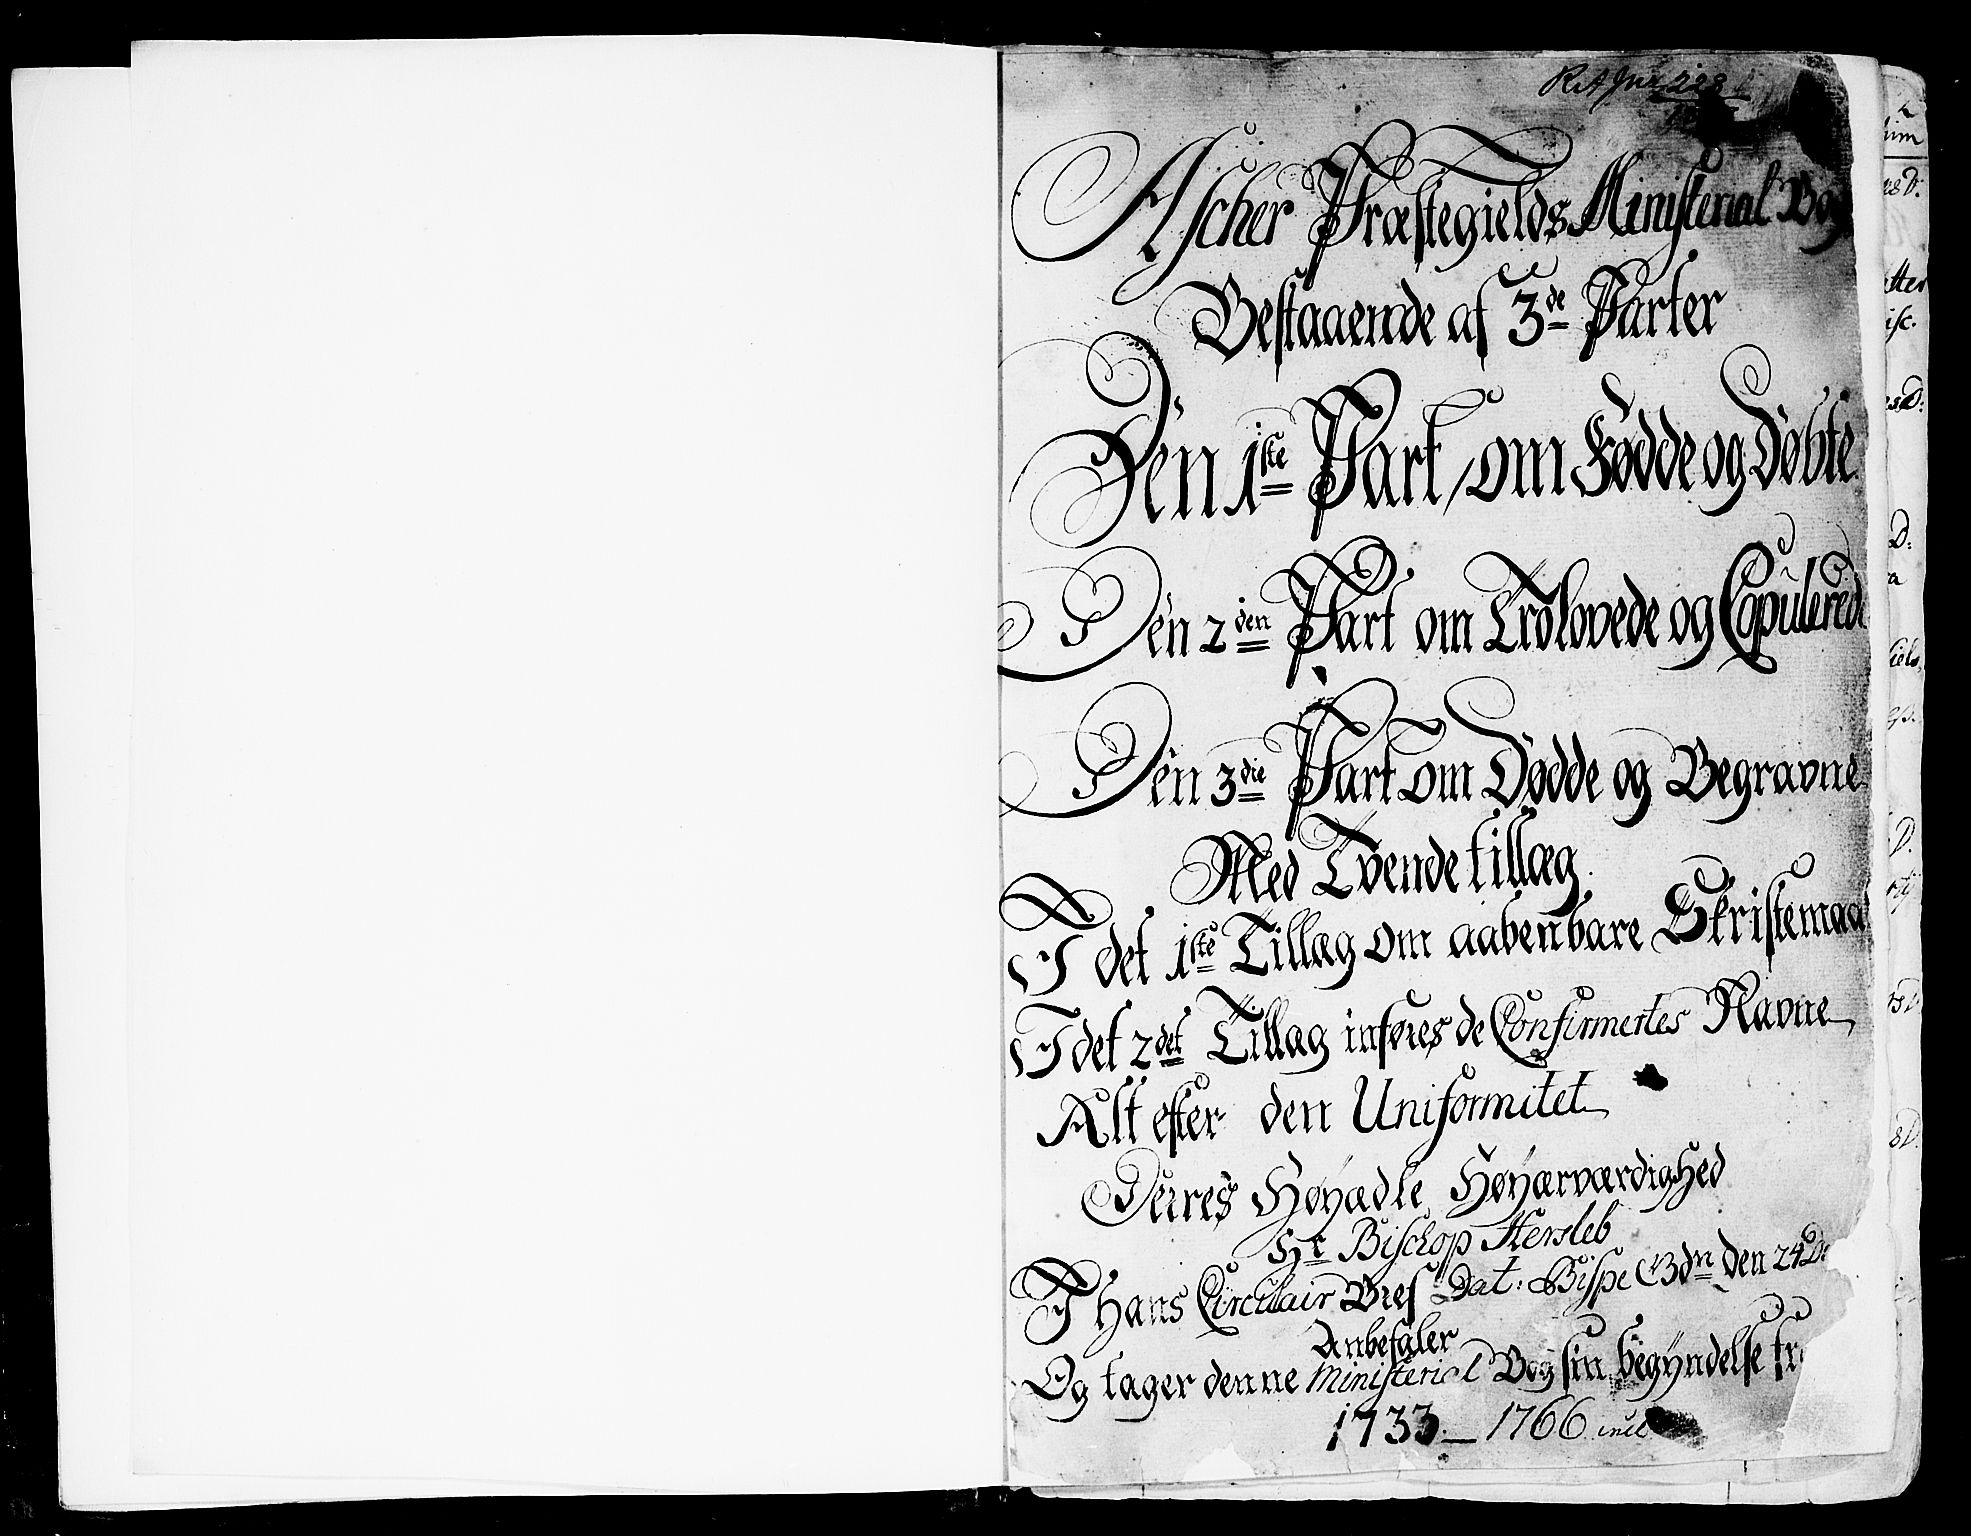 Ascher Præstegields Ministerial Bog
Bestaaende af 3de Parter
Den 1ste Part, om Fødde og Døbte
Den 2den Part om Trolovede og Copulerede
Den 3die Part om Dødde og Begravne
Med Tvende tillæg
I det 1ste Tillæg om aabenbare Skriftemaa
I det 2det Tillæg inføres de Confirmertes Navne
Alt efter den Uniformitet
Deires Høyædle Høyærværdighed
Hr Bischop Hersleb
I Hans Circulair Bref Dat: Bispe den 24 D
Anbefaler
Og tager denne Ministerial Bog sin begyndelse fr
1733 _ 1766 incl